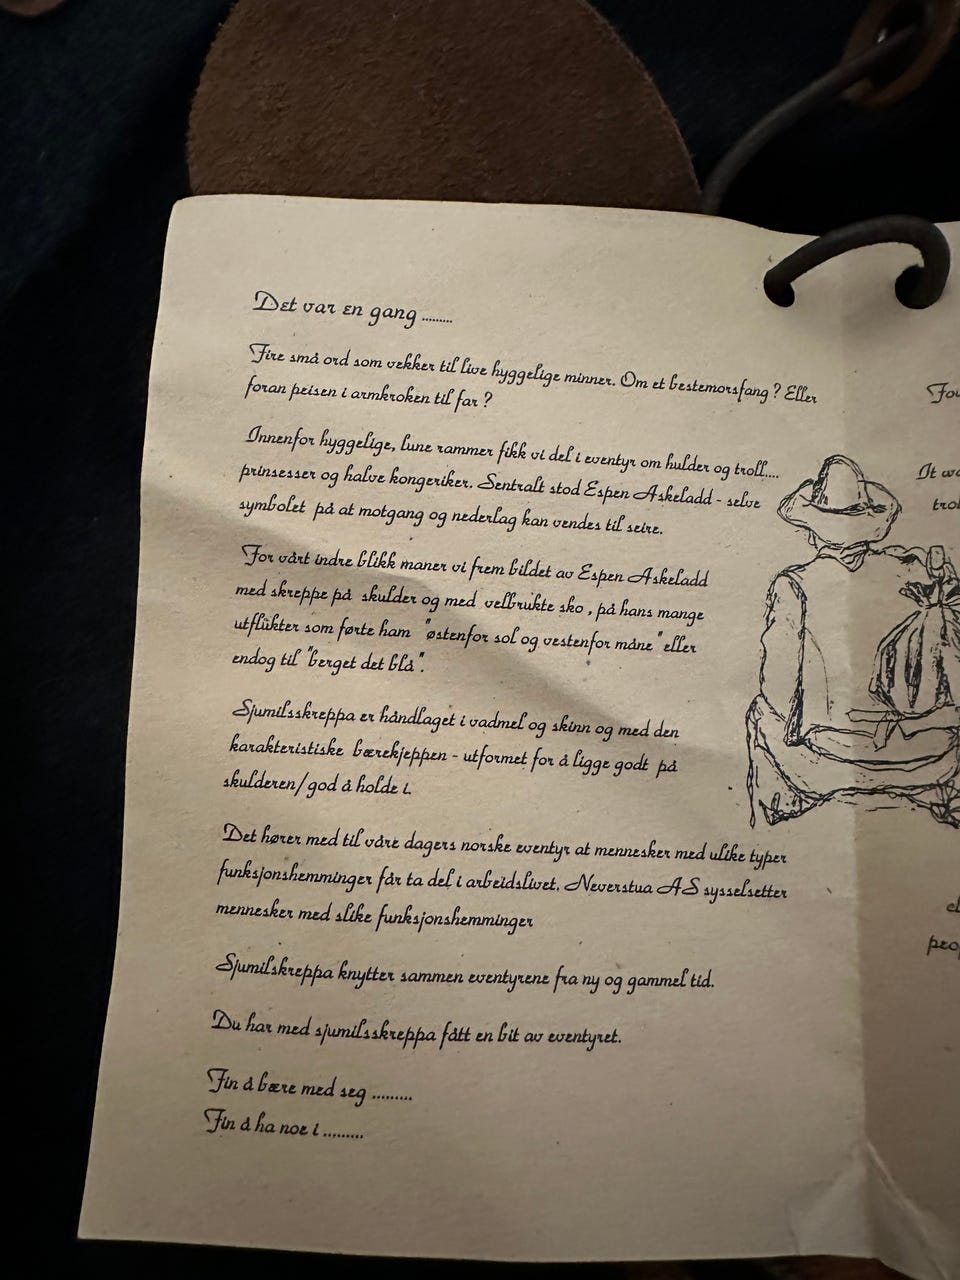 Det var en gang ........
Fire små ord som vekker til live hyggelige minner. Om et bestemorsfang ? Eller
foran peisen i armkroken til far ?
Innenfor hyggelige, lune rammer fikk vi del i eventyr om hulder og troll....
prinsesser og halve kongeriker. Sentralt stod Espen Askeladd - selve
symbolet på at motgang og nederlag kan vendes til seire.
For vårt indre blikk maner vi frem bildet av Espen Askeladd
med skreppe på skulder og med velbrukte sko , på hans mange
utflukter som førte ham "østenfor sol og vestenfor måne" eller
endog til "berget det blå".
Sjumilsskreppa er håndlaget i vadmel og skinn og med den
karakteristiske bærekjeppen - utformet for å ligge godt på
skulderen/god å holde i.
Det hører med til våre dagers norske eventyr at mennesker med ulike typer
funksjonshemminger får ta del i arbeidslivet. Neverstua AS sysselsetter
mennesker med slike funksjonshemminger
Sjumilskreppa knytter sammen eventyrene fra ny og gammel tid.
Du har med sjumilsskreppa fått en bit av eventyret.
Fin å bære med seg .........
Fin å ha noe i .........
It